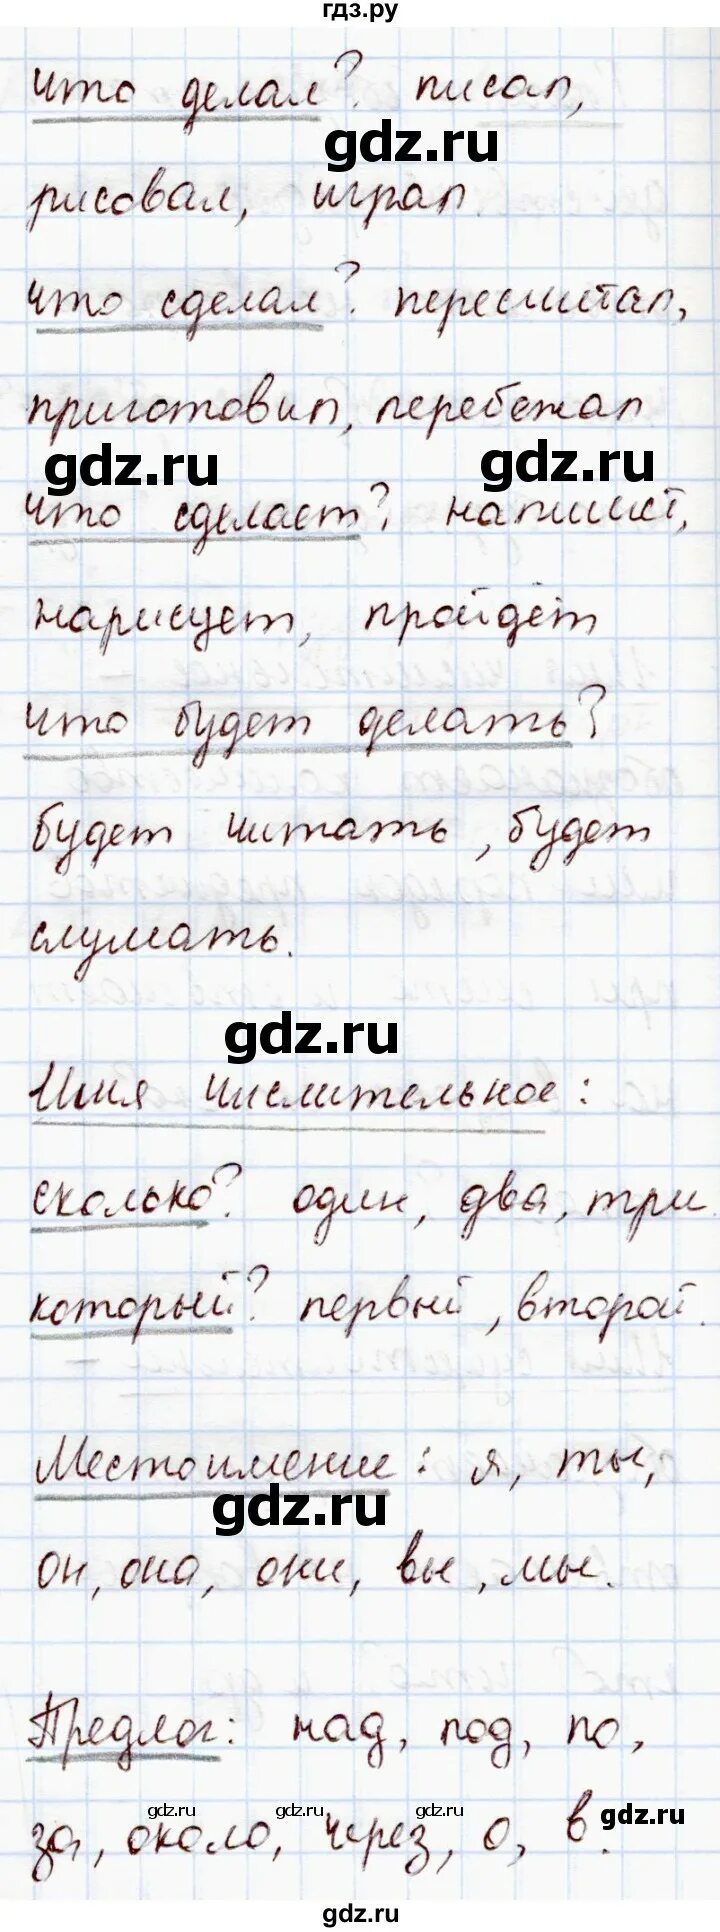 гдз.ру
что делал? писал,
gdz.ru
рисовал, играл
что сделал? пересчитал,
приготовил, перебежал
gdz.ru gdz.ru
что сделает? напишет,
нарисует, пройдёт
что будет делать?
будет читать, будет
слушать.
gdz.ru
Имя числительное:
сколько? один, два, три.
который? первый, второй.
Местоимение: я, ты,
gdz.ru
он, она, они, вы, мы.
Предлог: над, под, по,
gdz.ru gdz.ru gdz.ru gdz.ru
за, около, через, о, в.
gdz.ru